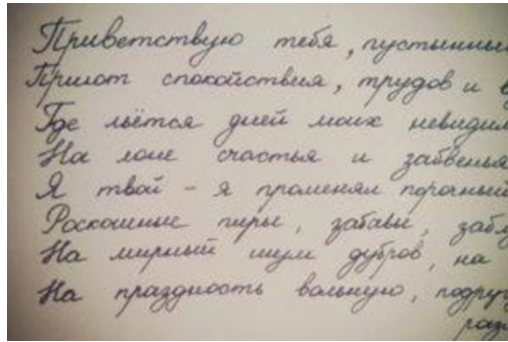 Приветствую тебя, пустынный
Приют спокойствия, трудов и в
Где льётся дней моих невидим
На лоне счастья и забвенья
Я твой - я променял порочный
Роскошные пиры, забавы, забл
На мирный шум дубров, на
На праздность вольную, подруг
раз